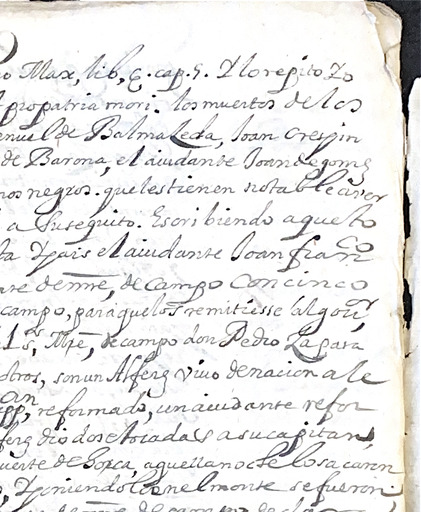 o Max, lib, 6. cap. 5. Y lo repito Zo
propatria mori. los muertos de los
enuel de Balmaseda, Joan Crespin
de Barona, el aiudante Joan de gomez
nos negros. que les tienen notable
a su seguito. Escribiendo aquesto
ta Ypais el aiudante Joan fran^co
are de mre, de campo con cinco
campo, para que los remitiesse al gou^r,
Mre, de campo don Pedro Lagara
otros, son un Alferez vivo de nacion ale
reformado, un aiudante refor
ferz dio dos estocadas a su capitan,
uerte de Gorca, aquella noche lo sacaron
Y poniendolo en el monte se fueron